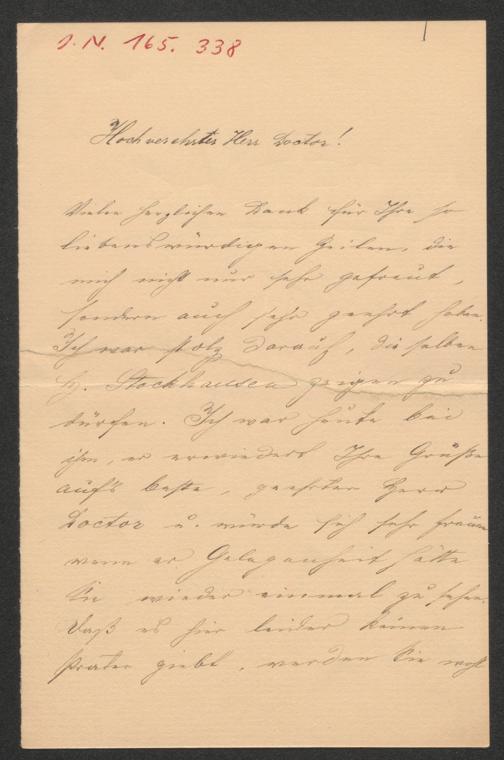 J.N. 165.338
Hochverehrter Herr Doctor!
Vielen herzlichen Dank für Ihre so
liebenswürdigen Zeilen, die
mich nicht nur sehr gefreut,
sondern auch sehr geehrt haben.
Ich war stolz darauf, dieselben
H. Stockhausen zeigen zu
dürfen. Ich war heute bei
ihm, er erwiedert Ihre Grüße
auf's beste, geehrter Herr
Doctor u. würde sich sehr freuen
wenn er Gelegenheit hätte
Sie wieder einmal zu sehen.
Daß es hier leider keinen
Prater giebt, werden Sie wohl